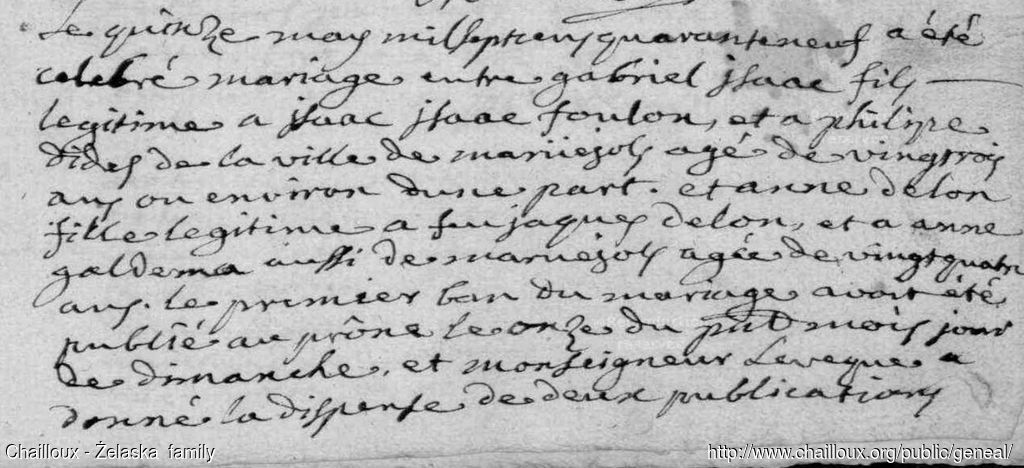 Le quinze may mil sept cens quarante neuf a été
celebré mariage entre gabriel jsaac fils
legitime a jsaac jsaac foulon, et a philipe
dides de la ville de maruejols agé de vingt trois
ans ou environ dune part. et anne delon
fille legitime a feu jaques delon, et a anne
galdema aussi de maruejols agée de vingt quatre
ans. le premier ban du mariage avoit été
publié au prône le onze du pnt mois jour
de dimanche, et monseigneur Leveque a
donné la dispense de deux publications
Chailloux - Żelaska family
http://www.chailloux.org/public/geneal/